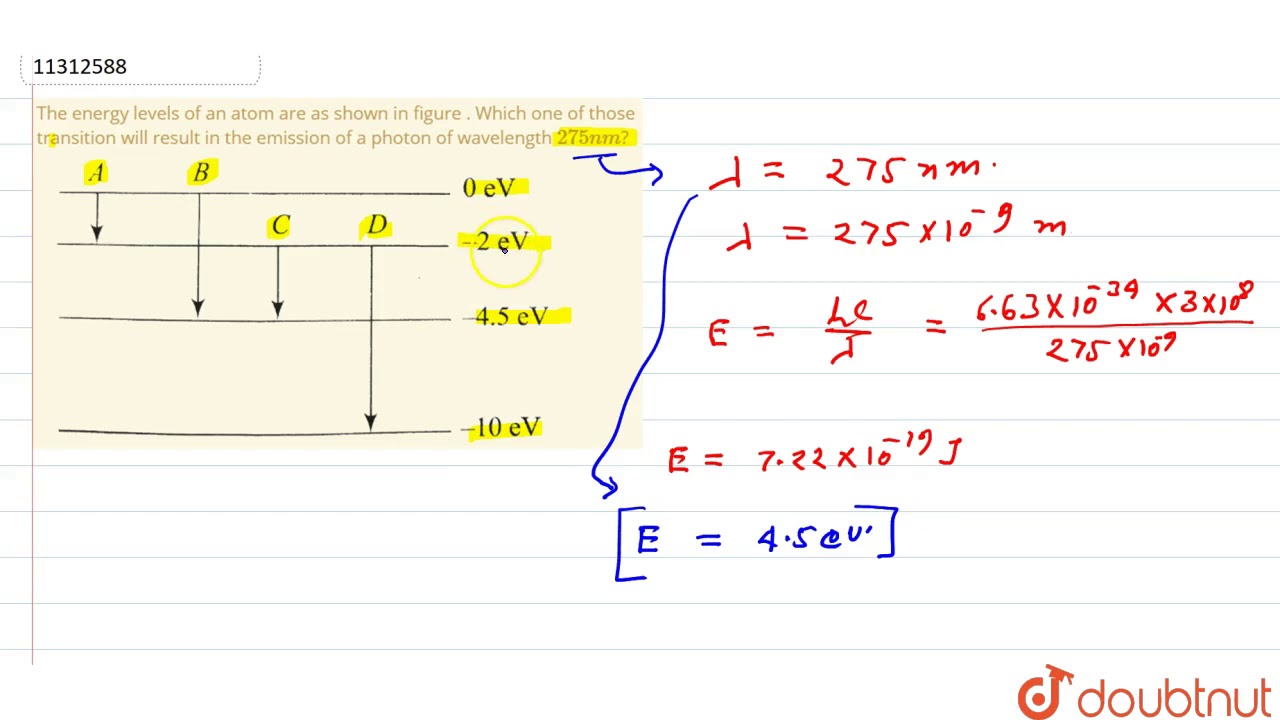 11312588
The energy levels of an atom are as shown in figure . Which one of those
transition will result in the emission of a photon of wavelength 275nm?
A B
0 eV
C D
–2 eV
–4.5 eV
–10 eV
λ = 275 nm.
λ = 275 × 10⁻⁹ m
E = hc/λ = 6.63 × 10⁻³⁴ × 3 × 10⁸ / 275 × 10⁻⁹
E = 7.22 × 10⁻¹⁹ J
[E = 4.5 eV.]
doubtnut